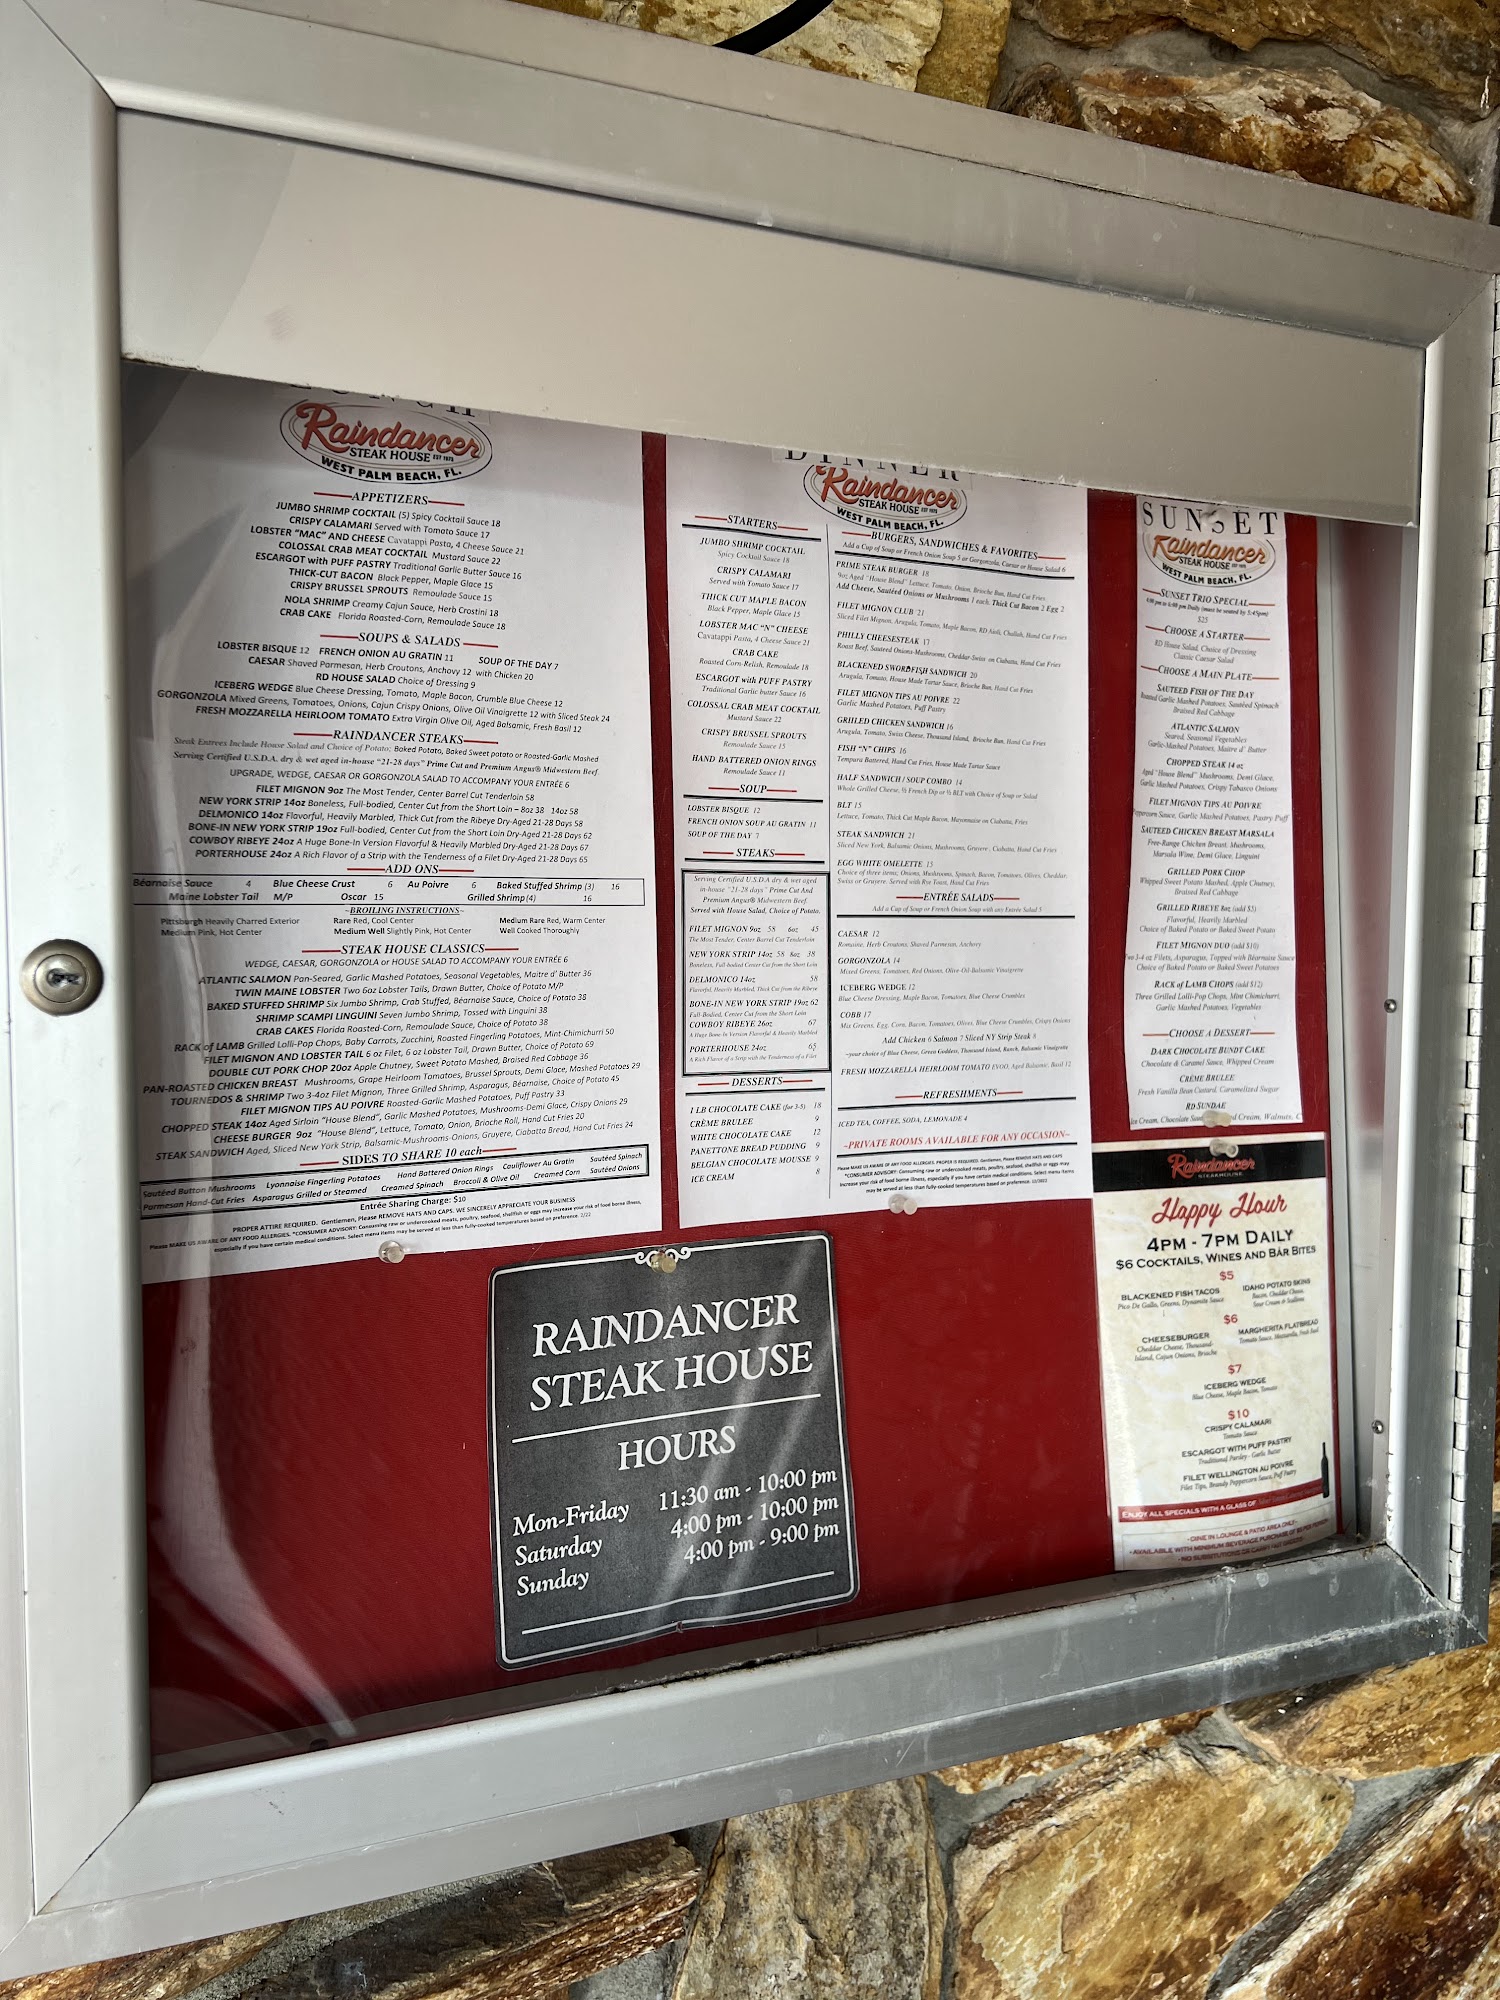 LUNCH
Raindancer
STEAK HOUSE EST 1975
WEST PALM BEACH, FL.
APPETIZERS
JUMBO SHRIMP COCKTAIL (5) Spicy Cocktail Sauce 18
CRISPY CALAMARI Served with Tomato Sauce 17
LOBSTER "MAC" AND CHEESE Cavatappi Pasta, 4 Cheese Sauce 21
COLOSSAL CRAB MEAT COCKTAIL Mustard Sauce 22
ESCARGOT with PUFF PASTRY Traditional Garlic Butter Sauce 16
THICK-CUT BACON Black Pepper, Maple Glace 15
CRISPY BRUSSEL SPROUTS Remoulade Sauce 15
NOLA SHRIMP Creamy Cajun Sauce, Herb Crostini 18
CRAB CAKE Florida Roasted-Corn, Remoulade Sauce 18
SOUPS & SALADS
LOBSTER BISQUE 12 FRENCH ONION AU GRATIN 11 SOUP OF THE DAY 7
CAESAR Shaved Parmesan, Herb Croutons, Anchovy 12 with Chicken 20
RD HOUSE SALAD Choice of Dressing 9
ICEBERG WEDGE Blue Cheese Dressing, Tomato, Maple Bacon, Crumble Blue Cheese 12
GORGONZOLA Mixed Greens, Tomatoes, Onions, Cajun Crispy Onions, Olive Oil Vinaigrette 12 with Sliced Steak 24
FRESH MOZZARELLA HEIRLOOM TOMATO Extra Virgin Olive Oil, Aged Balsamic, Fresh Basil 12
RAINDANCER STEAKS
Steak Entrees Include House Salad and Choice of Potato: Baked Potato, Baked Sweet potato or Roasted-Garlic Mashed
Serving Certified U.S.D.A. dry & wet aged in-house "21-28 days" Prime Cut and Premium Angus® Midwestern Beef.
UPGRADE, WEDGE, CAESAR OR GORGONZOLA SALAD TO ACCOMPANY YOUR ENTRÉE 6
FILET MIGNON 9oz The Most Tender, Center Barrel Cut Tenderloin 58
NEW YORK STRIP 14oz Boneless, Full-bodied, Center Cut from the Short Loin – 8oz 38 14oz 58
DELMONICO 14oz Flavorful, Heavily Marbled, Thick Cut from the Ribeye Dry-Aged 21-28 Days 58
BONE-IN NEW YORK STRIP 19oz Full-bodied, Center Cut from the Short Loin Dry-Aged 21-28 Days 62
COWBOY RIBEYE 24oz A Huge Bone-In Version Flavorful & Heavily Marbled Dry-Aged 21-28 Days 67
PORTERHOUSE 24oz A Rich Flavor of a Strip with the Tenderness of a Filet Dry-Aged 21-28 Days 65
ADD ONS
Béarnaise Sauce 4 Blue Cheese Crust 6 Au Poivre 6 Baked Stuffed Shrimp (3) 16
Maine Lobster Tail M/P Oscar 15 Grilled Shrimp(4) 16
~BROILING INSTRUCTIONS~
Pittsburgh Heavily Charred Exterior Rare Red, Cool Center Medium Rare Red, Warm Center
Medium Pink, Hot Center Medium Well Slightly Pink, Hot Center Well Cooked Thoroughly
STEAK HOUSE CLASSICS
WEDGE, CAESAR, GORGONZOLA or HOUSE SALAD TO ACCOMPANY YOUR ENTRÉE 6
ATLANTIC SALMON Pan-Seared, Garlic Mashed Potatoes, Seasonal Vegetables, Maitre d' Butter 36
TWIN MAINE LOBSTER Two 6oz Lobster Tails, Drawn Butter, Choice of Potato M/P
BAKED STUFFED SHRIMP Six Jumbo Shrimp, Crab Stuffed, Béarnaise Sauce, Choice of Potato 38
SHRIMP SCAMPI LINGUINI Seven Jumbo Shrimp, Tossed with Linguini 38
CRAB CAKES Florida Roasted-Corn, Remoulade Sauce, Choice of Potato 38
RACK of LAMB Grilled Lolli-Pop Chops, Baby Carrots, Zucchini, Roasted Fingerling Potatoes, Mint-Chimichurri 50
FILET MIGNON AND LOBSTER TAIL 6 oz Filet, 6 oz Lobster Tail, Drawn Butter, Choice of Potato 69
DOUBLE CUT PORK CHOP 20oz Apple Chutney, Sweet Potato Mashed, Braised Red Cabbage 36
PAN-ROASTED CHICKEN BREAST Mushrooms, Grape Heirloom Tomatoes, Brussel Sprouts, Demi Glace, Mashed Potatoes 29
TOURNEDOS & SHRIMP Two 3-4oz Filet Mignon, Three Grilled Shrimp, Asparagus, Béarnaise, Choice of Potato 45
FILET MIGNON TIPS AU POIVRE Roasted-Garlic Mashed Potatoes, Puff Pastry 33
CHOPPED STEAK 14oz Aged Sirloin "House Blend", Garlic Mashed Potatoes, Mushrooms-Demi Glace, Crispy Onions 29
CHEESE BURGER 9oz "House Blend", Lettuce, Tomato, Onion, Brioche Roll, Hand Cut Fries 20
STEAK SANDWICH Aged, Sliced New York Strip, Balsamic-Mushrooms-Onions, Gruyere, Ciabatta Bread, Hand Cut Fries 24
SIDES TO SHARE 10 each
Sautéed Button Mushrooms Lyonnaise Fingerling Potatoes Hand Battered Onion Rings Cauliflower Au Gratin Sautéed Spinach
Parmesan Hand-Cut Fries Asparagus Grilled or Steamed Creamed Spinach Broccoli & Olive Oil Creamed Corn Sautéed Onions
Entrée Sharing Charge: $10
PROPER ATTIRE REQUIRED. Gentlemen, Please REMOVE HATS AND CAPS. WE SINCERELY APPRECIATE YOUR BUSINESS
Please MAKE US AWARE OF ANY FOOD ALLERGIES. *CONSUMER ADVISORY: Consuming raw or undercooked meats, poultry, seafood, shellfish or eggs may increase your risk of food borne illness,
especially if you have certain medical conditions. Select menu items may be served at less than fully-cooked temperatures based on preference. 2/22
DINNER
Raindancer
STEAK HOUSE EST 1975
WEST PALM BEACH, FL.
STARTERS
JUMBO SHRIMP COCKTAIL
Spicy Cocktail Sauce 18
CRISPY CALAMARI
Served with Tomato Sauce 17
THICK CUT MAPLE BACON
Black Pepper, Maple Glace 15
LOBSTER MAC "N" CHEESE
Cavatappi Pasta, 4 Cheese Sauce 21
CRAB CAKE
Roasted Corn-Relish, Remoulade 18
ESCARGOT with PUFF PASTRY
Traditional Garlic butter Sauce 16
COLOSSAL CRAB MEAT COCKTAIL
Mustard Sauce 22
CRISPY BRUSSEL SPROUTS
Remoulade Sauce 15
HAND BATTERED ONION RINGS
Remoulade Sauce 11
SOUP
LOBSTER BISQUE 12
FRENCH ONION SOUP AU GRATIN 11
SOUP OF THE DAY 7
STEAKS
Serving Certified U.S.D.A dry & wet aged
in-house "21-28 days" Prime Cut And
Premium Angus® Midwestern Beef.
Served with House Salad, Choice of Potato.
FILET MIGNON 9oz 58 6oz 45
The Most Tender, Center Cut Tenderloin
NEW YORK STRIP 14oz 58 8oz 38
Boneless, Full-bodied Center Cut from the Short Loin
DELMONICO 14oz 58
Flavorful, Heavily Marbled, Thick Cut from the Ribeye
BONE-IN NEW YORK STRIP 19oz 62
Full-Bodied, Center Cut from the Short Loin
COWBOY RIBEYE 26oz 67
A Huge Bone-In Version Flavorful & Heavily Marbled
PORTERHOUSE 24oz 65
A Rich Flavor of a Strip with the Tenderness of a Filet
DESSERTS
1 LB CHOCOLATE CAKE (for 3-5) 18
CRÈME BRULEE 9
WHITE CHOCOLATE CAKE 12
PANETTONE BREAD PUDDING 9
BELGIAN CHOCOLATE MOUSSE 9
ICE CREAM 8
BURGERS, SANDWICHES & FAVORITES
Add a Cup of Soup or French Onion Soup 5 or Gorgonzola, Caesar or House Salad 6
PRIME STEAK BURGER 18
9oz Aged "House Blend" Lettuce, Tomato, Onion, Brioche Bun, Hand Cut Fries.
Add Cheese, Sautéed Onions or Mushrooms 1 each: Thick Cut Bacon 2 Egg 2
FILET MIGNON CLUB 21
Sliced Filet Mignon, Arugula, Tomato, Maple Bacon, RD Aioli, Challah, Hand Cut Fries
PHILLY CHEESESTEAK 17
Roast Beef, Sauteed Onions-Mushrooms, Cheddar-Swiss on Ciabatta, Hand Cut Fries
BLACKENED SWORDFISH SANDWICH 20
Arugula, Tomato, House Made Tartar Sauce, Brioche Bun, Hand Cut Fries
FILET MIGNON TIPS AU POIVRE 22
Garlic Mashed Potatoes, Puff Pastry
GRILLED CHICKEN SANDWICH 16
Arugula, Tomato, Swiss Cheese, Thousand Island, Brioche Bun, Hand Cut Fries
FISH "N" CHIPS 16
Tempura Battered, Hand Cut Fries, House Made Tartar Sauce
HALF SANDWICH / SOUP COMBO 14
Whole Grilled Cheese, ½ French Dip or ½ BLT with Choice of Soup or Salad
BLT 15
Lettuce, Tomato, Thick Cut Maple Bacon, Mayonnaise on Ciabatta, Fries
STEAK SANDWICH 21
Sliced New York, Balsamic Onions, Mushrooms, Gruyere, Ciabatta, Hand Cut Fries
EGG WHITE OMELETTE 15
Choice of three items; Onions, Mushrooms, Spinach, Bacon, Tomatoes, Olives, Cheddar,
Swiss or Gruyere. Served with Rye Toast, Hand Cut Fries
ENTRÉE SALADS
Add a Cup of Soup or French Onion Soup with any Entrée Salad 5
CAESAR 12
Romaine, Herb Croutons, Shaved Parmesan, Anchovy
GORGONZOLA 14
Mixed Greens, Tomatoes, Red Onions, Olive-Oil-Balsamic Vinaigrette
ICEBERG WEDGE 12
Blue Cheese Dressing, Maple Bacon, Tomatoes, Blue Cheese Crumbles
COBB 17
Mix Greens, Egg, Corn, Bacon, Tomatoes, Olives, Blue Cheese Crumbles, Crispy Onions
Add Chicken 6 Salmon 7 Sliced NY Strip Steak 8
~your choice of Blue Cheese, Green Goddess, Thousand Island, Ranch, Balsamic Vinaigrette
FRESH MOZZARELLA HEIRLOOM TOMATO EVOO, Aged Balsamic, Basil 12
REFRESHMENTS
ICED TEA, COFFEE, SODA, LEMONADE 4
~PRIVATE ROOMS AVAILABLE FOR ANY OCCASION~
Please MAKE US AWARE OF ANY FOOD ALLERGIES. PROPER IS REQUIRED. Gentlemen, Please REMOVE HATS AND CAPS
*CONSUMER ADVISORY: Consuming raw or undercooked meats, poultry, seafood, shellfish or eggs may
increase your risk of food borne illness, especially if you have certain medical conditions. Select menu items
may be served at less than fully-cooked temperatures based on preference.
SUNSET
Raindancer
STEAK HOUSE EST 1975
WEST PALM BEACH, FL.
SUNSET TRIO SPECIAL
4:00 pm to 6:00 pm Daily (must be seated by 5:45pm)
$25
CHOOSE A STARTER
RD House Salad, Choice of Dressing
Classic Caesar Salad
CHOOSE A MAIN PLATE
SAUTEED FISH OF THE DAY
Roasted Garlic Mashed Potatoes, Sautéed Spinach
Braised Red Cabbage
ATLANTIC SALMON
Seared, Seasonal Vegetables
Garlic-Mashed Potatoes, Maitre d' Butter
CHOPPED STEAK 14 oz
Aged "House Blend" Mushrooms, Demi Glace,
Mashed Potatoes, Crispy Tabasco Onions
FILET MIGNON TIPS AU POIVRE
Peppercorn Sauce, Garlic Mashed Potatoes, Pastry Puff
SAUTEED CHICKEN BREAST MARSALA
Free-Range Chicken Breast, Mushrooms,
Marsala Wine, Demi Glace, Linguini
GRILLED PORK CHOP
Whipped Sweet Potato Mashed, Apple Chutney,
Braised Red Cabbage
GRILLED RIBEYE 8oz (add $5)
Flavorful, Heavily Marbled
Choice of Baked Potato or Baked Sweet Potato
FILET MIGNON DUO (add $10)
Two 3-4 oz Filets, Asparagus, Topped with Béarnaise Sauce
Choice of Baked Potato or Baked Sweet Potatoes
RACK of LAMB CHOPS (add $12)
Three Grilled Lolli-Pop Chops, Mint Chimichurri,
Garlic Mashed Potatoes, Vegetables
CHOOSE A DESSERT
DARK CHOCOLATE BUNDT CAKE
Chocolate & Caramel Sauce, Whipped Cream
CRÈME BRULEE
Fresh Vanilla Bean Custard, Caramelized Sugar
RD SUNDAE
Ice Cream, Chocolate Cream, Walnuts,
Raindancer
STEAKHOUSE
Happy Hour
4PM - 7PM DAILY
$6 COCKTAILS, WINES AND BAR BITES
$5
BLACKENED FISH TACOS
Pico De Gallo, Greens, Dynamite Sauce
IDAHO POTATO SKINS
Bacon, Cheddar Cheese,
Sour Cream & Scallions
$6
CHEESEBURGER
Cheddar Cheese, Thousand-
Island, Cajun Onions, Brioche
MARGHERITA FLATBREAD
Tomato Sauce, Mozzarella, Fresh Basil
$7
ICEBERG WEDGE
Blue Cheese, Maple Bacon, Tomato
$10
CRISPY CALAMARI
Tomato Sauce
ESCARGOT WITH PUFF PASTRY
Traditional Parsley - Garlic Butter
FILET WELLINGTON AU POIVRE
Filet Tips, Brandy Peppercorn Sauce, Puff Pastry
ENJOY ALL SPECIALS WITH A GLASS OF
~DINE IN LOUNGE & PATIO AREA ONLY~
~AVAILABLE WITH MINIMUM BEVERAGE PURCHASE OF PER PERSON
~NO SUBSTITUTIONS OR CARRY OUT ORDERS
RAINDANCER
STEAK HOUSE
HOURS
Mon-Friday 11:30 am - 10:00 pm
Saturday 4:00 pm - 10:00 pm
Sunday 4:00 pm - 9:00 pm